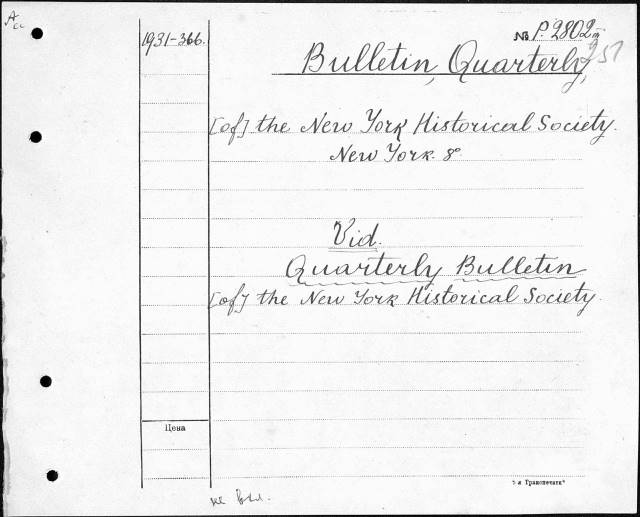 Aa
1931-366.
№ P.2802 m
251
Bulletin, Quarterly,
[of] the New York Historical Society.
New York. 8°
Vid.
Quarterly Bulletin
[of] the New York Historical Society.
Цена
"Транспечати"
не вкл.